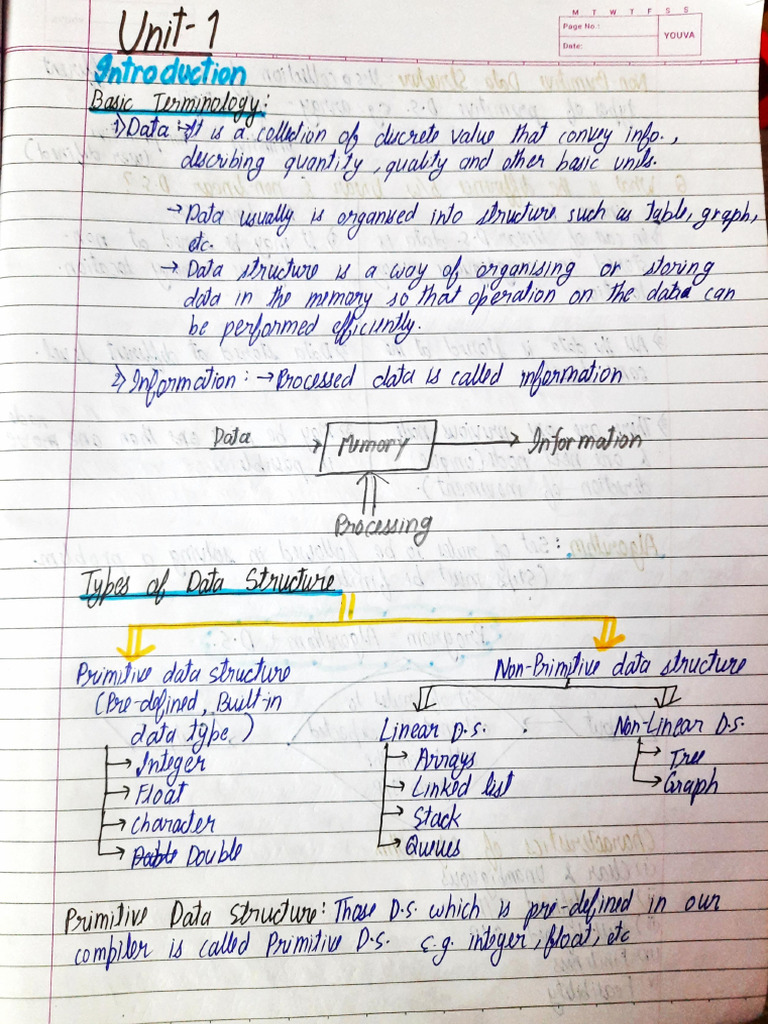 M T W T F S S
Page No.:
YOUVA
Date:
Unit-1
Introduction
Basic Terminology:
1) Data :→ It is a collection of discrete value that convey info.,
describing quantity, quality and other basic units.
→ Data usually is organised into structure such as table, graph,
etc.
→ Data structure is a way of organising or storing
data in the memory so that operation on the data can
be performed efficiently.
2) Information: → Processed data is called information
Data → Memory → Information
Processing
Types of Data Structure
Primitive data structure
Non-Primitive data structure
(Pre-defined, Built-in
data type)
Linear D.S.
Non-Linear D.S.
→ Integer
→ Arrays
→ Tree
→ Float
→ Linked list
→ Graph
→ Character
→ Stack
→ Double
→ Queues
Primitive Data Structure: Those D.S. which is pre-defined in our
compiler is called Primitive D.S. e.g. integer, float, etc